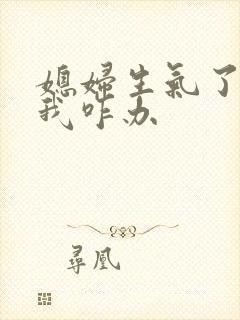 媳婦生氣了
我咋办
尋凰